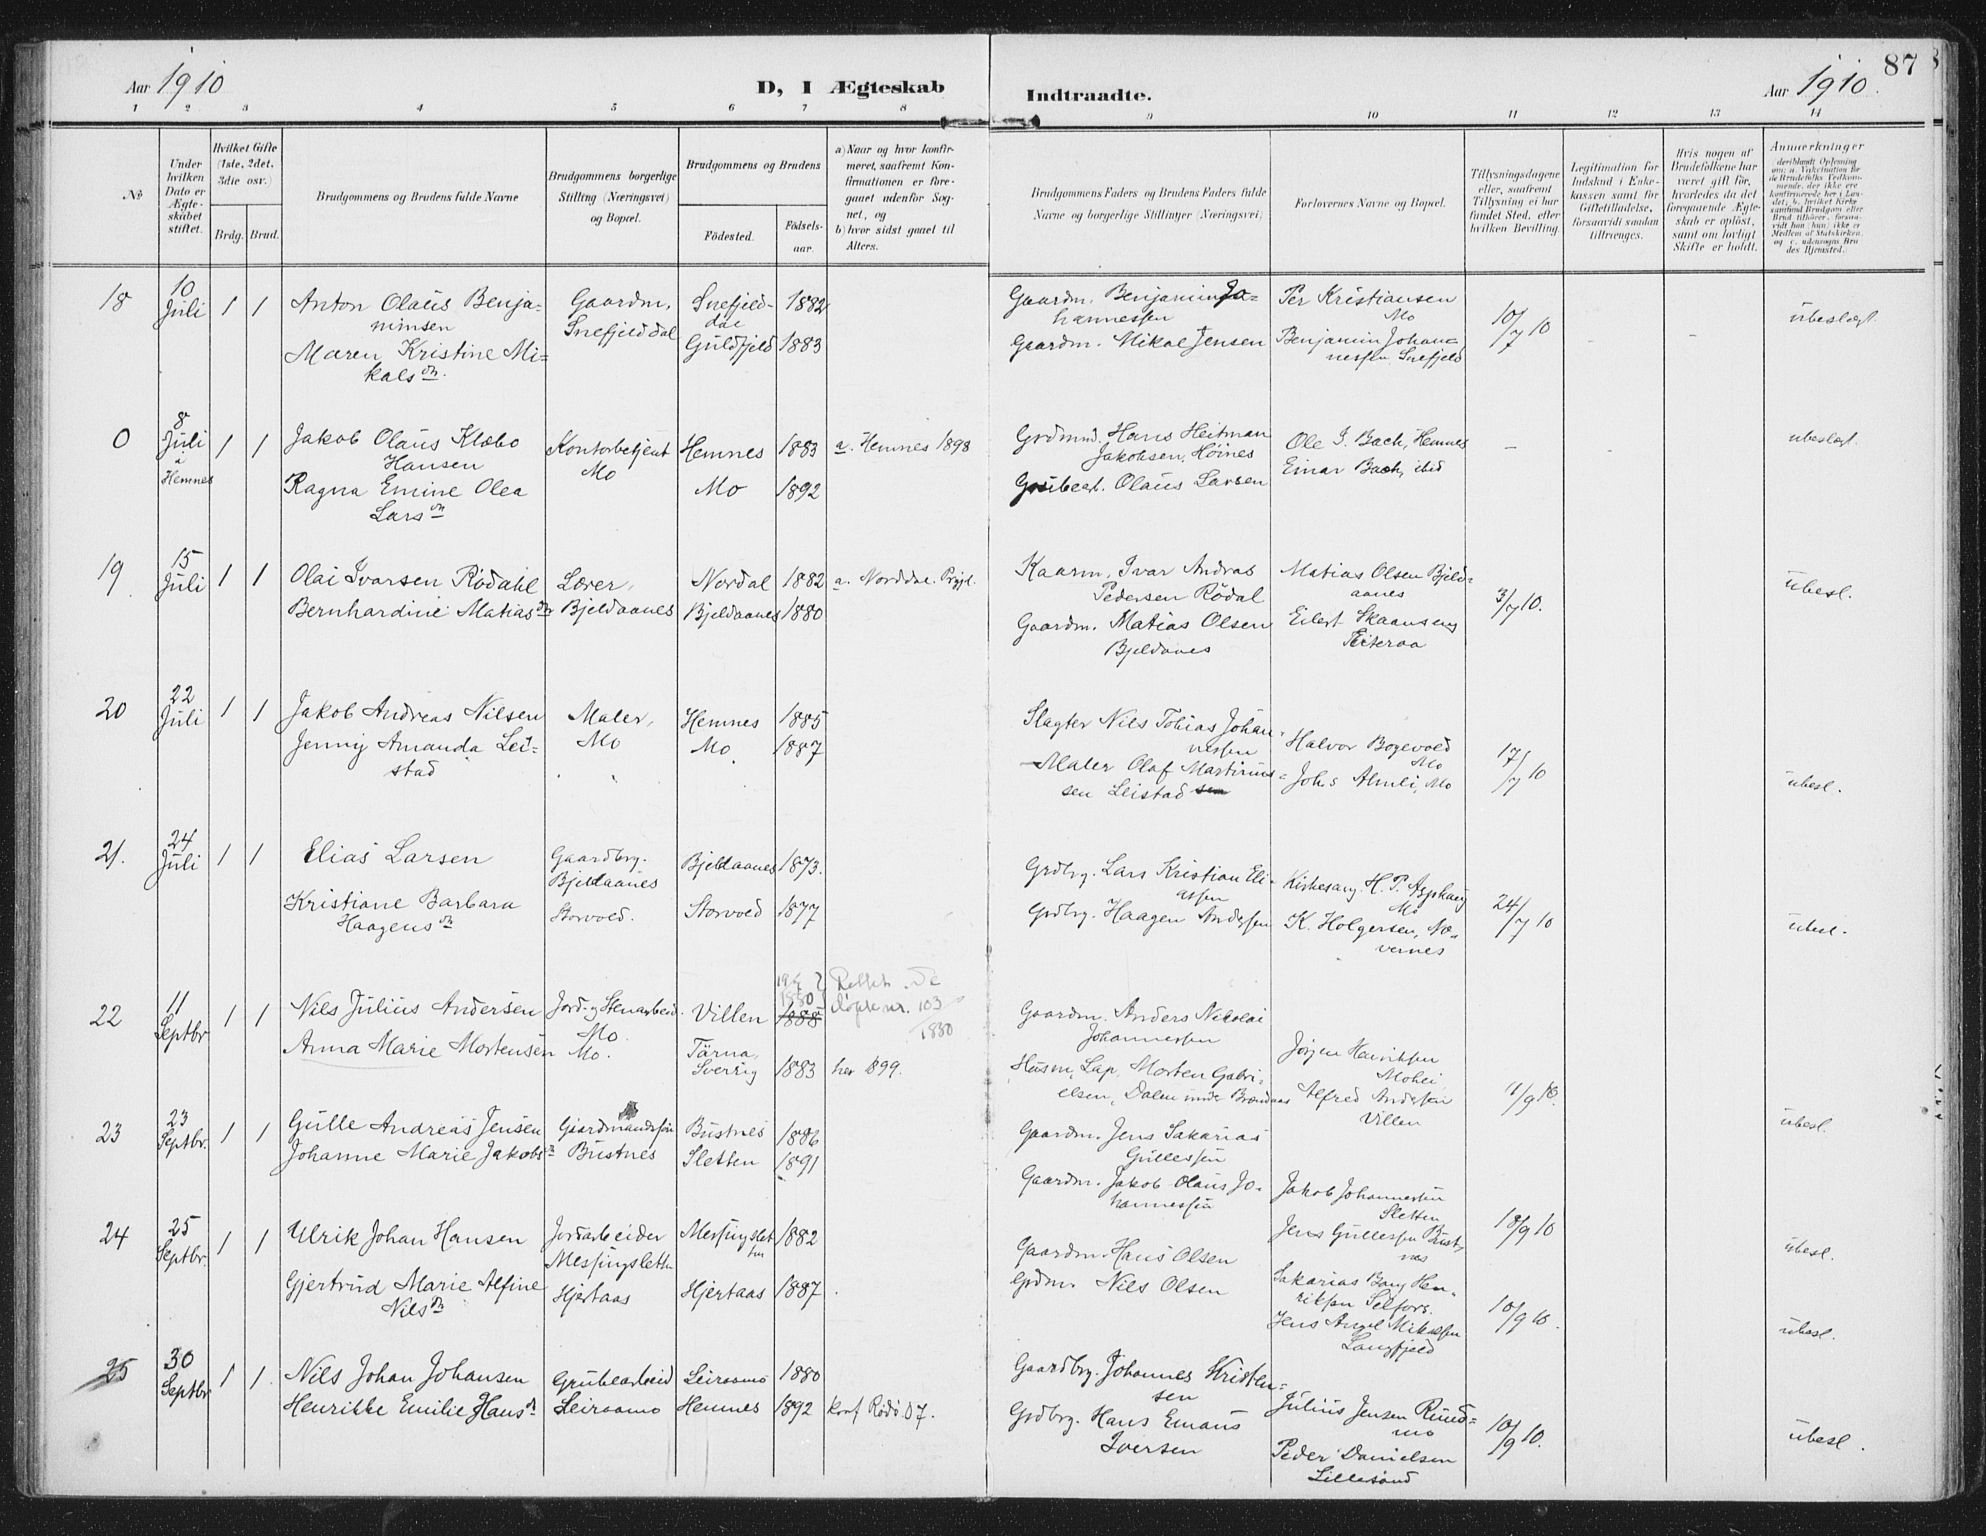 87
Aar 1910
D, I Ægteskab
Indtraadte.
Aar 1910.
1 2 3 4 5 6 7 8 9 10 11 12 13 14
№
Under hvilken Dato er Ægteskabet stiftet.
Hvilket Gifte (1ste, 2det, 3die osv.)
Brdg. Brud.
Brudgommens og Brudens fulde Navne
Brudgommens borgerlige Stilling (Næringsvei) og Bopæl.
Brudgommens og Brudens
Fødested.
Fødselsaar.
a) Naar og hvor konfirmeret, saafremt Konfirmationen er foregaaet udenfor Sognet, og
b) hvor sidst gaaet til Alters.
Brudgommens Faders og Brudens Faders fulde Navne og borgerlige Stillinger (Næringsvei)
Forlovernes Navne og Bopæl.
Tillysningsdagene eller, saafremt Tillysning ei har fundet Sted, efter hvilken Bevilling.
Legitimation for Indskud i Enkekassen samt for Giftetilladelse, forsaavidt saadan tiltrænges.
Hvis nogen af Brudefolkene har været gift før, hvorledes da det foregaaende Ægteskab er opløst, samt om lovligt Skifte er holdt.
Anmerkninger
18
10 Juli
1 1
Anton Olaus Benjaminsen
Maren Kristine Mikalsdn.
Gaardm. Snefjelddal
Snefjelddal 1882
Guldfjeld 1883
Gaardm. Benjamin Johannessen
Gaardm. Mikal Jensen
Per Kristiansen Mo
Benjamin Johannessen Snefjeld
10/7 10
ubeslegt.
0
8 Juli i Hemnes
1 1
Jakob Olaus Klæbo Hansen
Ragna Emine Olea Larsdn
Kontorbetjent Mo
Hemnes 1883
Mo 1892
a. Hemnes 1898
Grdmd. Hans Heitman Jakobsen, Høines
Grubearb. Olaus Larsen
Ole J. Bach, Hemnes
Einar Bach, ibid
–
ubeslegt.
19
15 Juli
1 1
Olai Ivarsen Rødahl
Bernhardine Matiasdn
Lærer, Bjeldaanes
Nordal 1882
Bjeldaanes 1880
a. Norddal Prgjl.
Kaarm. Ivar Andras Pedersen Rødal
Gaardm. Matias Olsen Bjeldanes
Matias Olsen Bjeldaanes
Eilert Skaanseng
3/7 10.
ubesl.
20
22 Juli
1 1
Jakob Andreas Nilsen
Jenny Amanda Leistad
Maler, Mo
Hemnes 1885
Mo 1887
Slagter Nils Tobias Johannessen
Maler Olaf Martinussen Leistad
Halvor Bogevold Mo
Johs Almli, Mo
17/7 10
ubesl.
21.
24 Juli
1 1
Elias Larsen
Kristiane Barbara Haagensdn
Gaardbrg. Bjeldaanes
Storvold.
Bjeldaanes 1873.
Storvold 1877
Grdbrg. Lars Kristian Eliassen
Grdbrg. Haagen Andersen
Kirkesang. H. P. Asphaug Mo
K. Holgersen,
24/7 10
ubesl.
22
11 Septbr
1 1
Nils Julius Andersen
Anna Marie Mortensen
Jord- og Stenarbeid. Mo.
Mo.
Villen 1888 1880
Tärna, Sverrig 1883
103 1880
her 1899.
Gaardm. Anders Nikolai Johannessen
Husm. Lap. Morten Gabrielsen, Dalen under
Jørgen Henriksen Mohei.
Alfred Andersen Villen
11/9 10.
ubesl.
23
23 Septbr.
1 1
Gulle Andreas Jensen
Johanne Marie Jakobsdn
Gaardmandssøn Bustnes
Bustnes 1886
Sletten 1891
Gaardm. Jens Sakarias Gullessen
Gaardm. Jakob Olaus Johannessen
Jakob Johannessen Sletten
Jens Gullessen Bustnes
18/9 10
ubesl.
24
25 Septbr.
1 1
Ulrik Johan Hansen
Gjertrud Marie Alfine Nilsdn
Jordarbeider Messingsletten
Hjertaas
Messingsletten 1882
Hjertaas 1887
Gaardm. Hans Olsen
Grdm. Nils Olsen
Sakarias Bang Henriksen Selfors.
Jens Angel Mikalsen Langfjeld
10/9 10.
ubesl.
25
30 Septbr
1 1
Nils Johan Johansen
Henrikke Emilie Hansdn
Grubearbeid Leiraamo
Leiraamo 1880
Hemnes 1892
konf Rødø 07.
Gaardbrg. Johannes Kristensen
Grdbrg. Hans Emaus Iversen
Julius Jensen Rundmo
Peder Danielsen Lillesund
10/9 10.
ubesl.